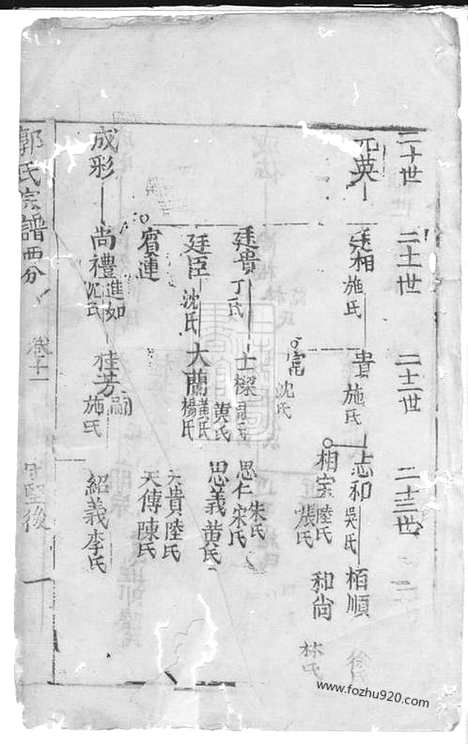 二十世 二十一世 二十二世 二十三世
元英 廷相 施氏 貴 施氏 志和 吳氏 栢順
相宗 陸氏 張氏 和尚 林氏
富 沈氏
廷貴 丁氏 士樑 黄氏 思仁 宋氏 朱氏
思義 黄氏
廷臣 沈氏 大蘭 黄氏 楊氏 天貴 陸氏
天傳 陳氏
賓連
成彩 尚禮 進如 沈氏 桂芳 嗣 施氏 紹義 李氏
郭氏宗譜西分 卷十一 後 一
www.fozhu920.com